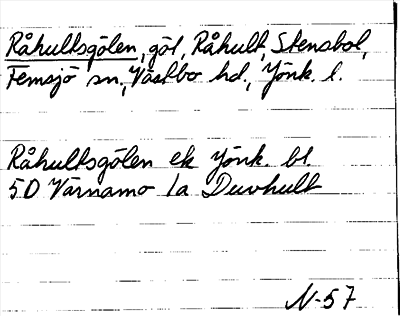 Råhultsgölen, göl, Råhult, Stensbol,
Femsjö sn, Västbo hd., Jönk. l.
Råhultsgölen ek Jönk. bl.
5D Värnamo 1a Duvhult
N-57